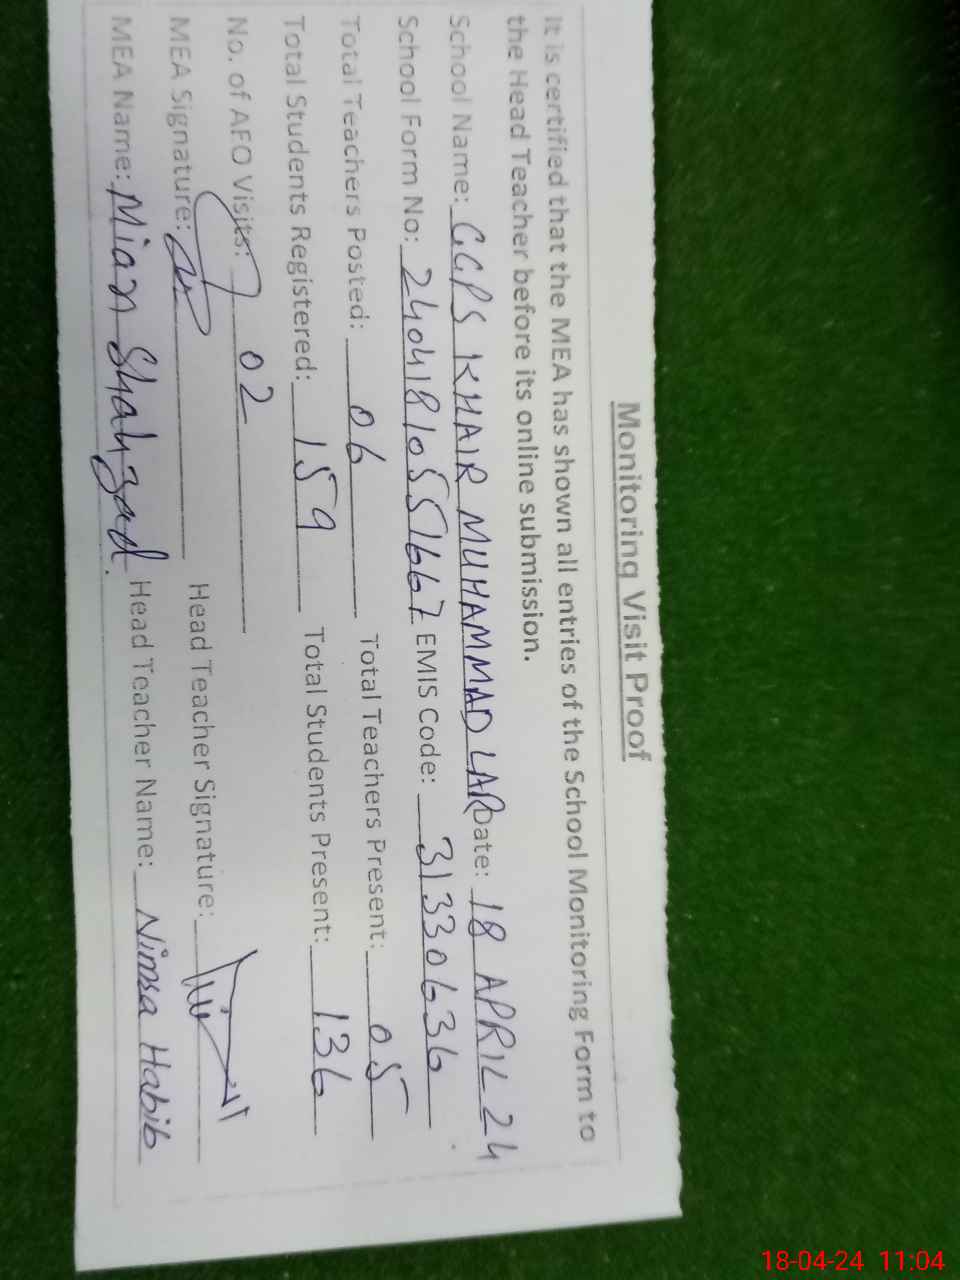 Monitoring Visit Proof
It is certified that the MEA has shown all entries of the School Monitoring Form to
the Head Teacher before its online submission.
School Name: GGPS KHAIR MUHAMMAD LAR Date: 18 APRIL 24
School Form No: 24041810551667 EMIS Code: 31330636
Total Teachers Posted: 06 Total Teachers Present: 05
Total Students Registered: 159 Total Students Present: 136
No. of AEO Visits: 02
MEA Signature: Head Teacher Signature:
MEA Name: Mian Shahzad. Head Teacher Name: Nimsa Habib
18-04-24 11:04